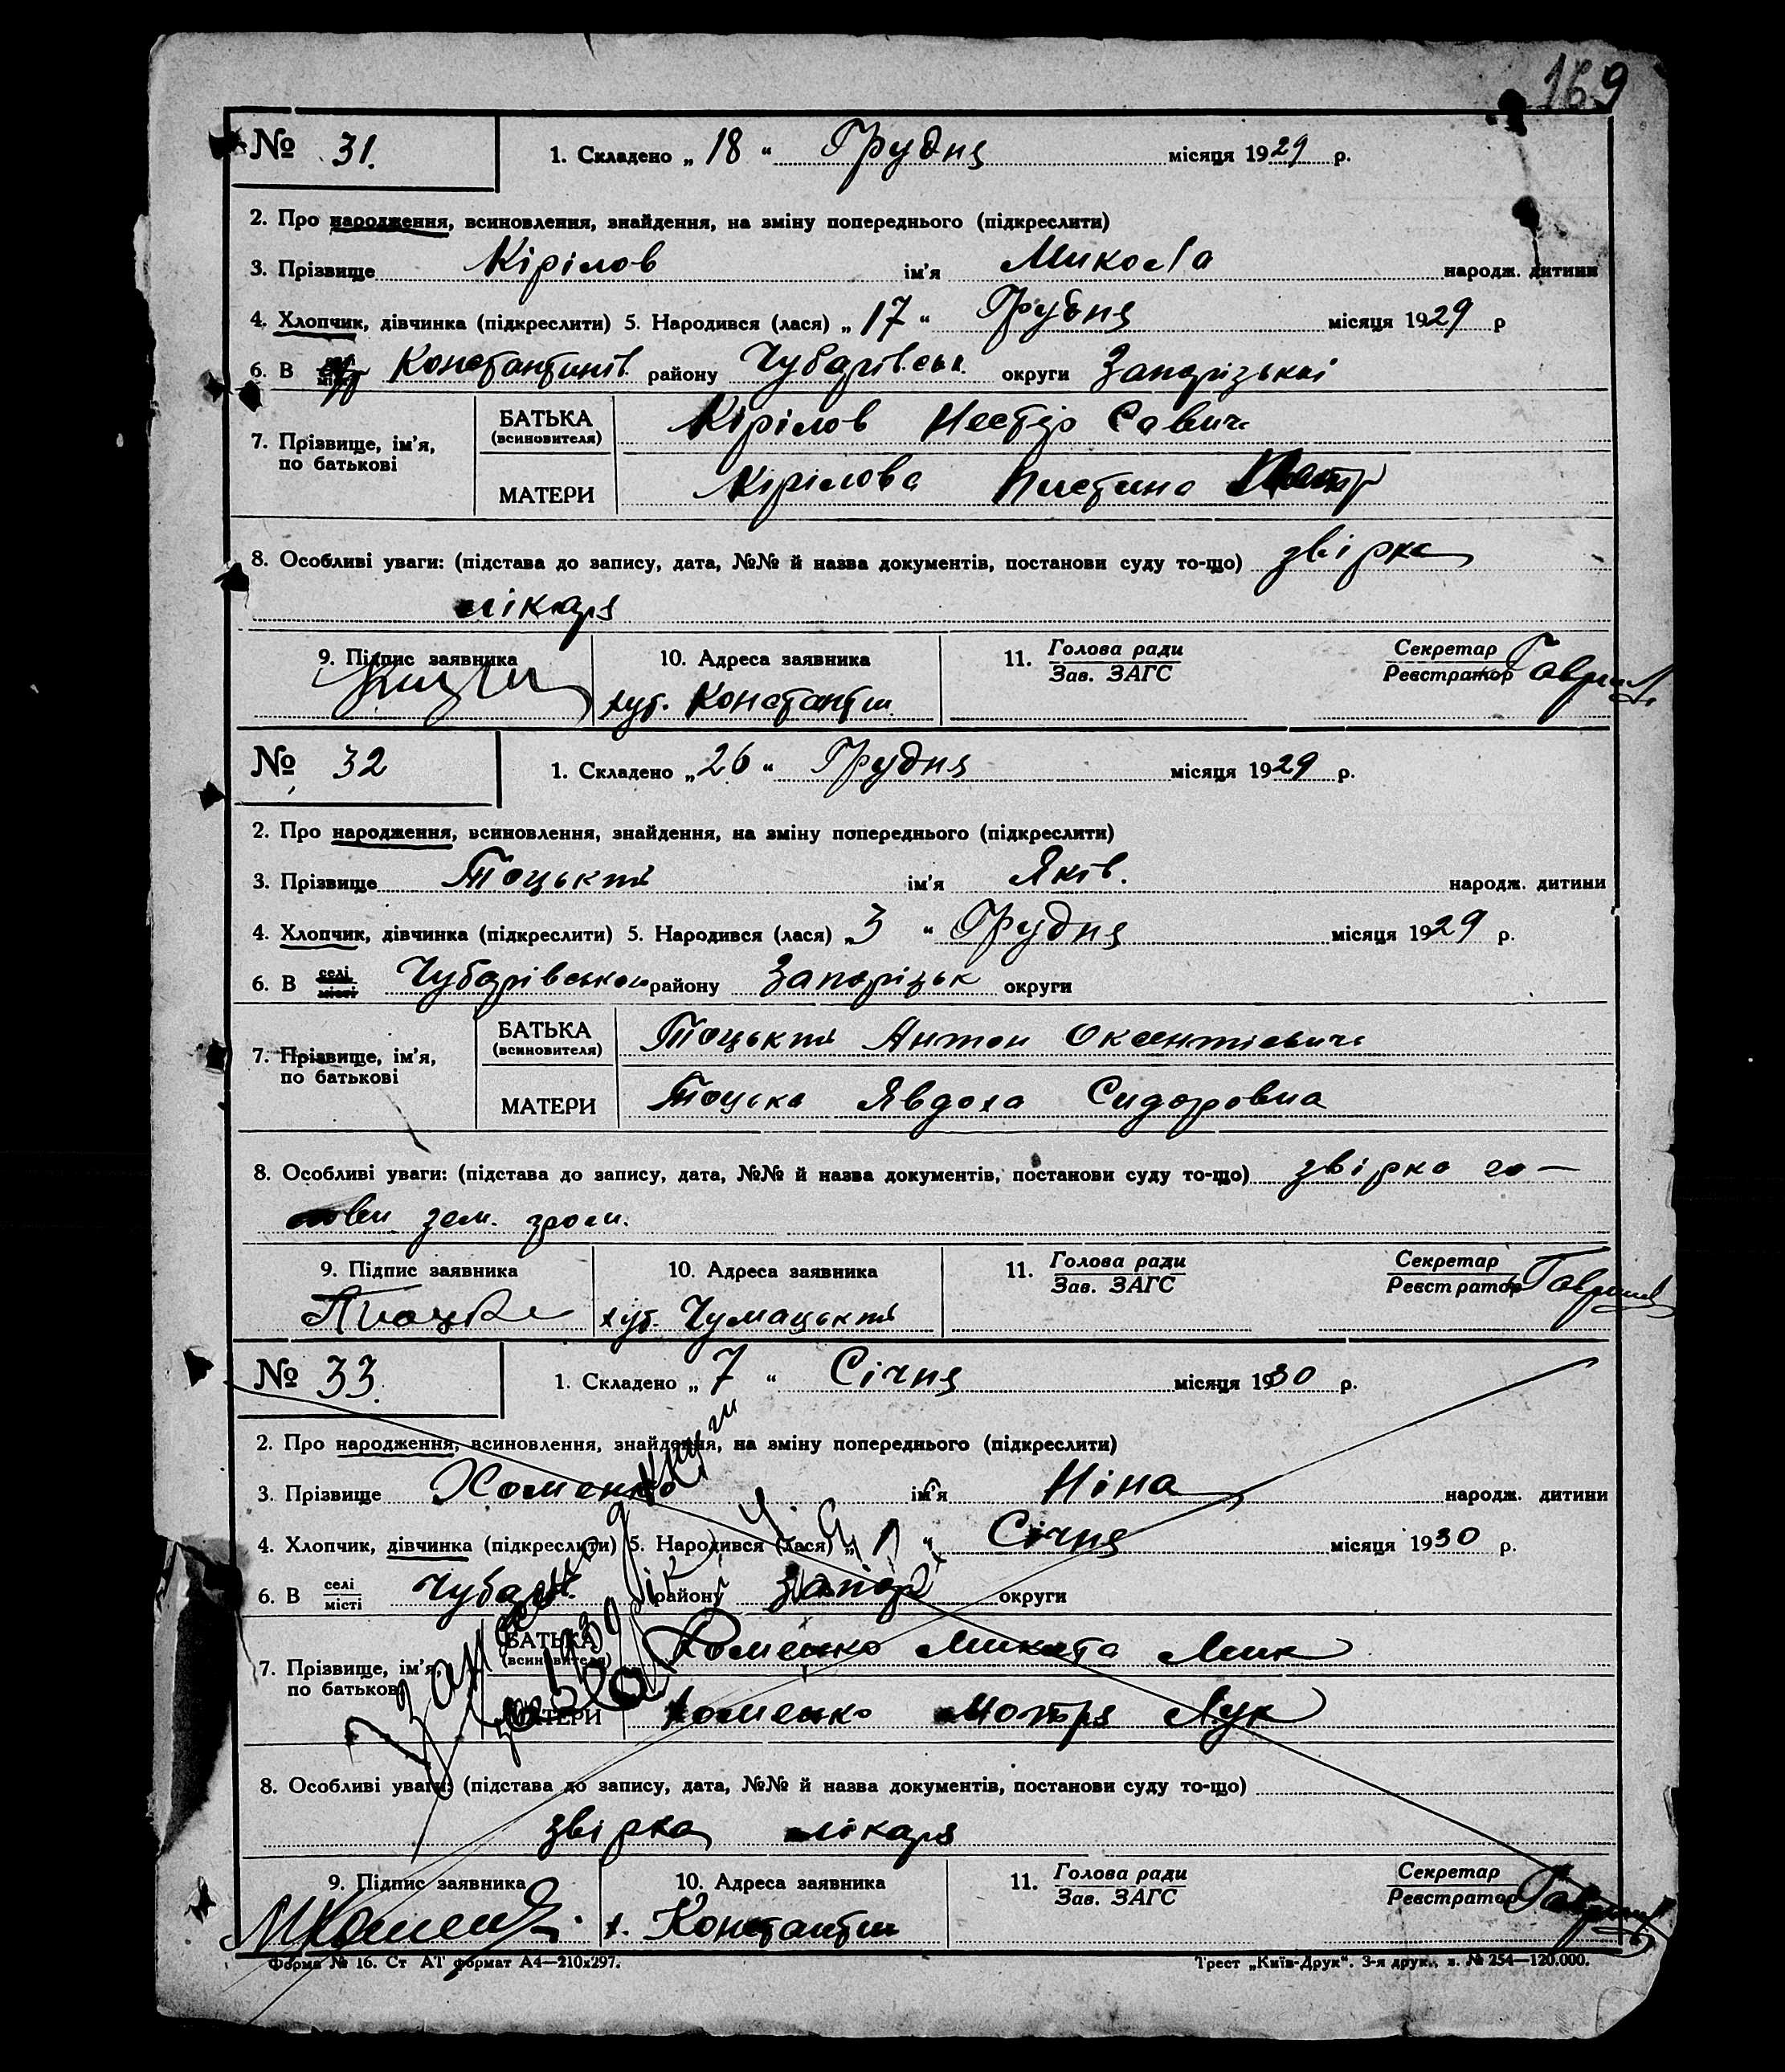 169
№ 31. 1. Складено „18“ Грудня місяця 1929 р.
2. Про народження, всиновлення, знайдення, на зміну попереднього (підкреслити)
3. Прізвище Кірілов ім'я Микола народж. дитини
4. Хлопчик, дівчинка (підкреслити) 5. Народився (лася) „17“ Грудня місяця 1929 р
6. В Константинів. району Чубарівськ. округи Запорізькі
7. Прізвище, ім'я, по батькові БАТЬКА (всиновителя) Кірілов Нестір Савич
МАТЕРИ Кірілова Пистина
8. Особливі уваги: (підстава до запису, дата, №№ й назва документів, постанови суду то-що) звірка
лікаря
9. Підпис заявника 10. Адреса заявника 11. Голова ради Зав. ЗАГС Секретар Реєстратор
хут. Константин.
№ 32 1. Складено „26“ Грудня місяця 1929 р.
2. Про народження, всиновлення, знайдення, на зміну попереднього (підкреслити)
3. Прізвище Тоцький ім'я Яків. народж. дитини
4. Хлопчик, дівчинка (підкреслити) 5. Народився (лася) „3“ Грудня місяця 1929 р.
6. В селі місті Чубарівського району Запорізьк округи
7. Прізвище, ім'я, по батькові БАТЬКА (всиновителя) Тоцький Антон Оксентієвич
МАТЕРИ Тоцька Явдоха Сидоровна
8. Особливі уваги: (підстава до запису, дата, №№ й назва документів, постанови суду то-що) звірка го-
лови зем. гром.
9. Підпис заявника 10. Адреса заявника 11. Голова ради Зав. ЗАГС Секретар Реєстратор
хут. Чумацький
№ 33. 1. Складено „7“ Січня місяця 1930 р.
2. Про народження, всиновлення, знайдення, на зміну попереднього (підкреслити)
3. Прізвище Хоменко ім'я Ніна народж. дитини
4. Хлопчик, дівчинка (підкреслити) 5. Народився (лася) „1“ Січня місяця 1930 р.
6. В селі місті Чубарів. району Запор округи
7. Прізвище, ім'я, по батькові БАТЬКА (всиновителя) Хоменко Микита Мик
МАТЕРИ Хоменко Мотря Лук
8. Особливі уваги: (підстава до запису, дата, №№ й назва документів, постанови суду то-що)
звірка лікаря
9. Підпис заявника 10. Адреса заявника 11. Голова ради Зав. ЗАГС Секретар Реєстратор
х. Константин
Форма № 16. Ст АТ формат А4—210х297. Трест „Київ-Друк“. 3-я друк., з. № 254—120.000.